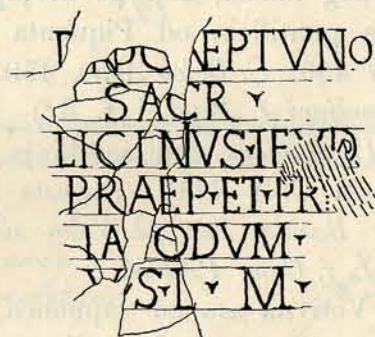 EPTVNO
SACR ·
LIC NVS·
PRAEP·ET·PR
IA ODVM·
S·L· M·